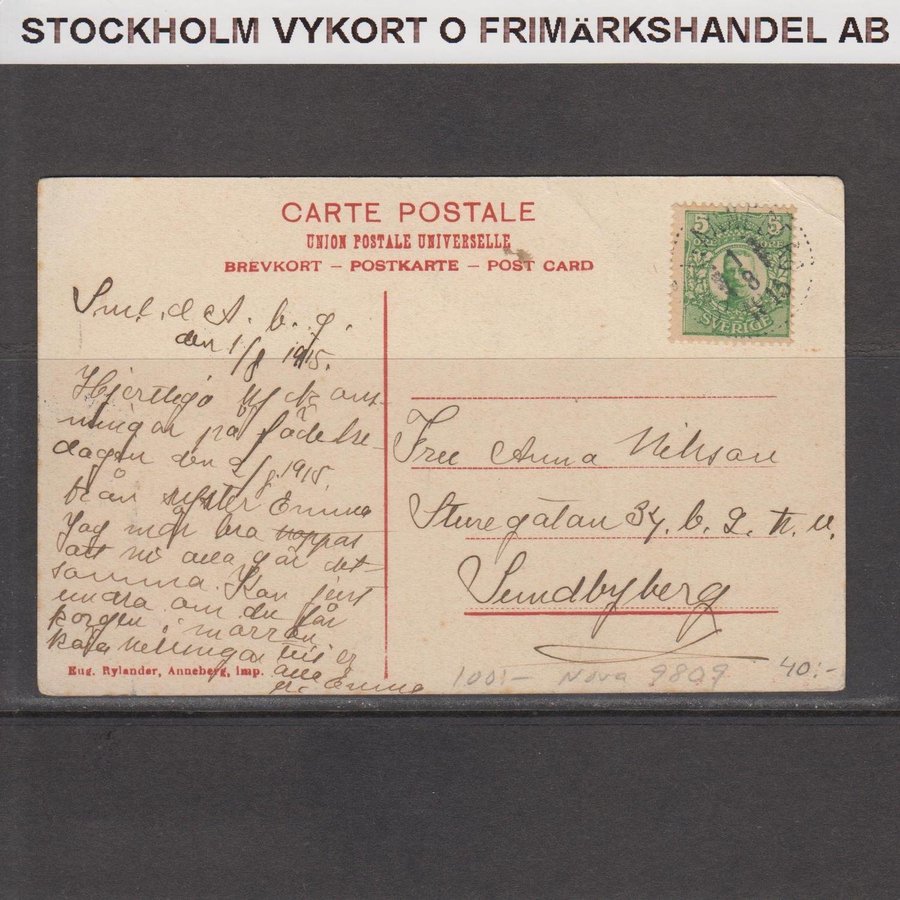 STOCKHOLM VYKORT O FRIMÄRKSHANDEL AB
CARTE POSTALE
UNION POSTALE UNIVERSELLE
BREVKORT – POSTKARTE – POST CARD
5 5
ÖRE
SVERIGE
1
8
15
den 1/8 1915.
Hjertliga
ningar på födelse-
dagen den 2/8 1915
från syster Emma
Jag mår bra hoppas
att ni alla gör det-
samma. Kan just
undra om du får
korgen i morron
till er
alla
Emma
Eug. Rylander, Anneberg, Imp.
Anna Nilsson
Sturegatan 34. b. 2. tr. v.
Sundbyberg
100:- Nova 9809 40:-